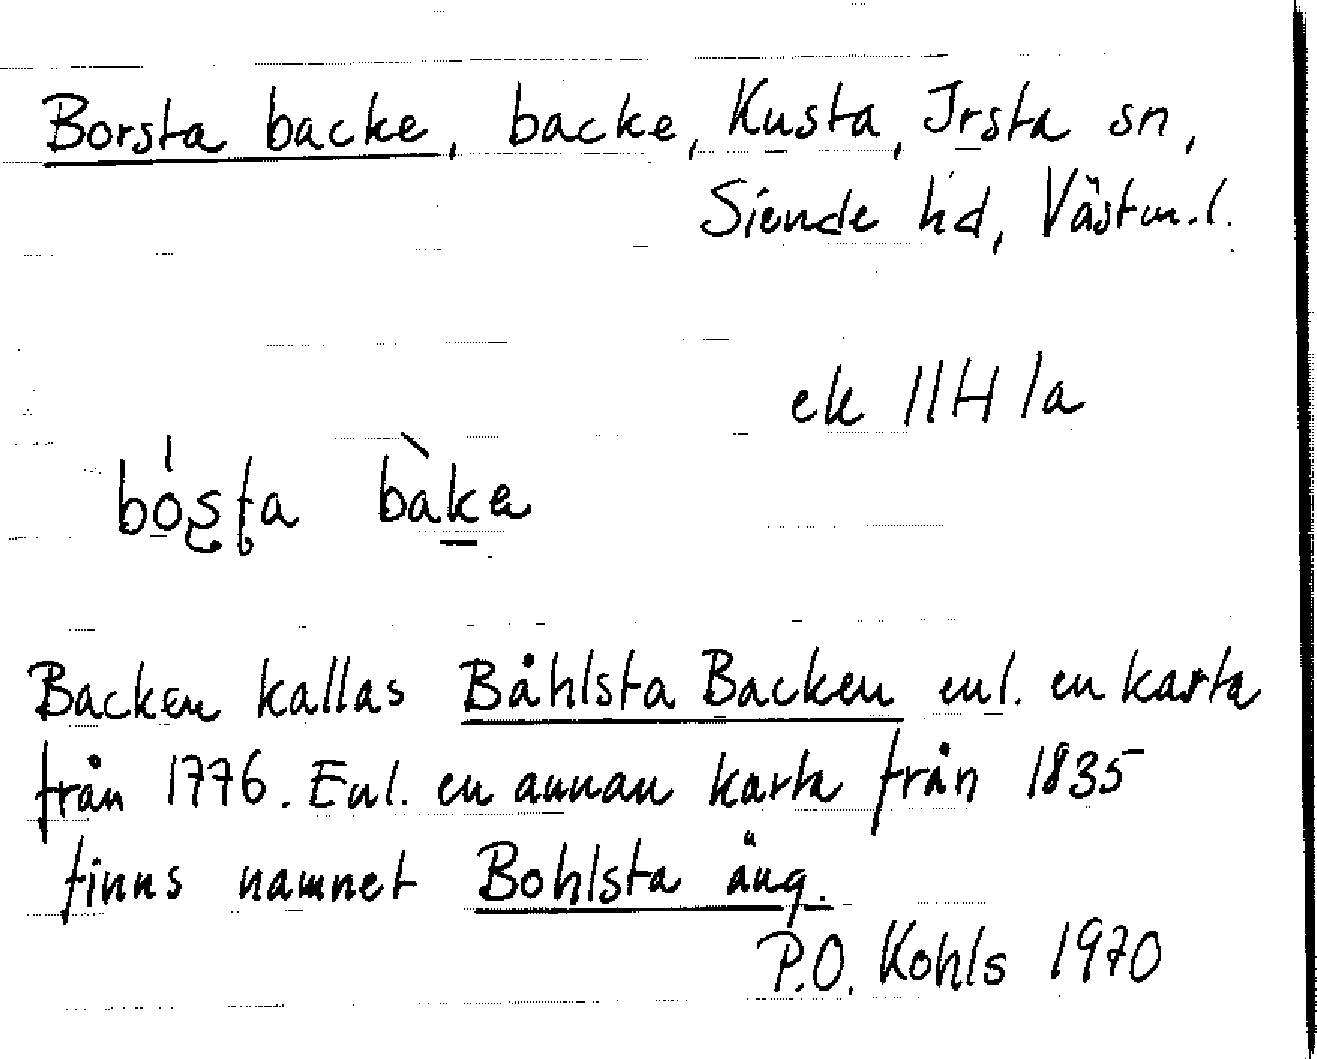 Borsta backe, backe, Kusta, Irsta sn,
Siende hd, Västm.l.
ek 11H 1a
bós̡ƫa bàka
Backen kallas Båhlsta Backen enl. en karta
från 1776. Enl. en annan karta från 1835
finns namnet Bohlsta äng.
P.O. Kohls 1970